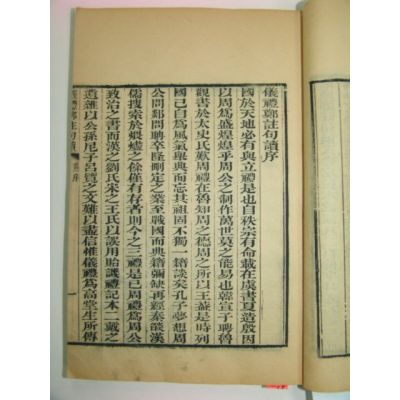 儀禮鄭註句讀序
國於天地必有與立禮是也自秩宗有命載在虞書夏造殷因
以周爲盛煌煌乎周公之制作萬世莫之能易也韓宣子聘魯
觀書於太史氏歎周禮在魯知周之德周之所以王蓋是時列
國已自爲風氣舉典而忘其祖固不獨一籍談矣孔子夢想周
公問郯問聃卒隆刪定之業至戰國而典籍彌缺再經秦燄漢
儒搜索於煨燼之餘僅有存者則今之三禮是已周禮爲周公
致治之書而漢之劉氏宋之王氏以誤用貽譏禮記本二戴之
遺雜以公孫尼子呂覽之文難以盡信惟儀禮爲高堂生所傳